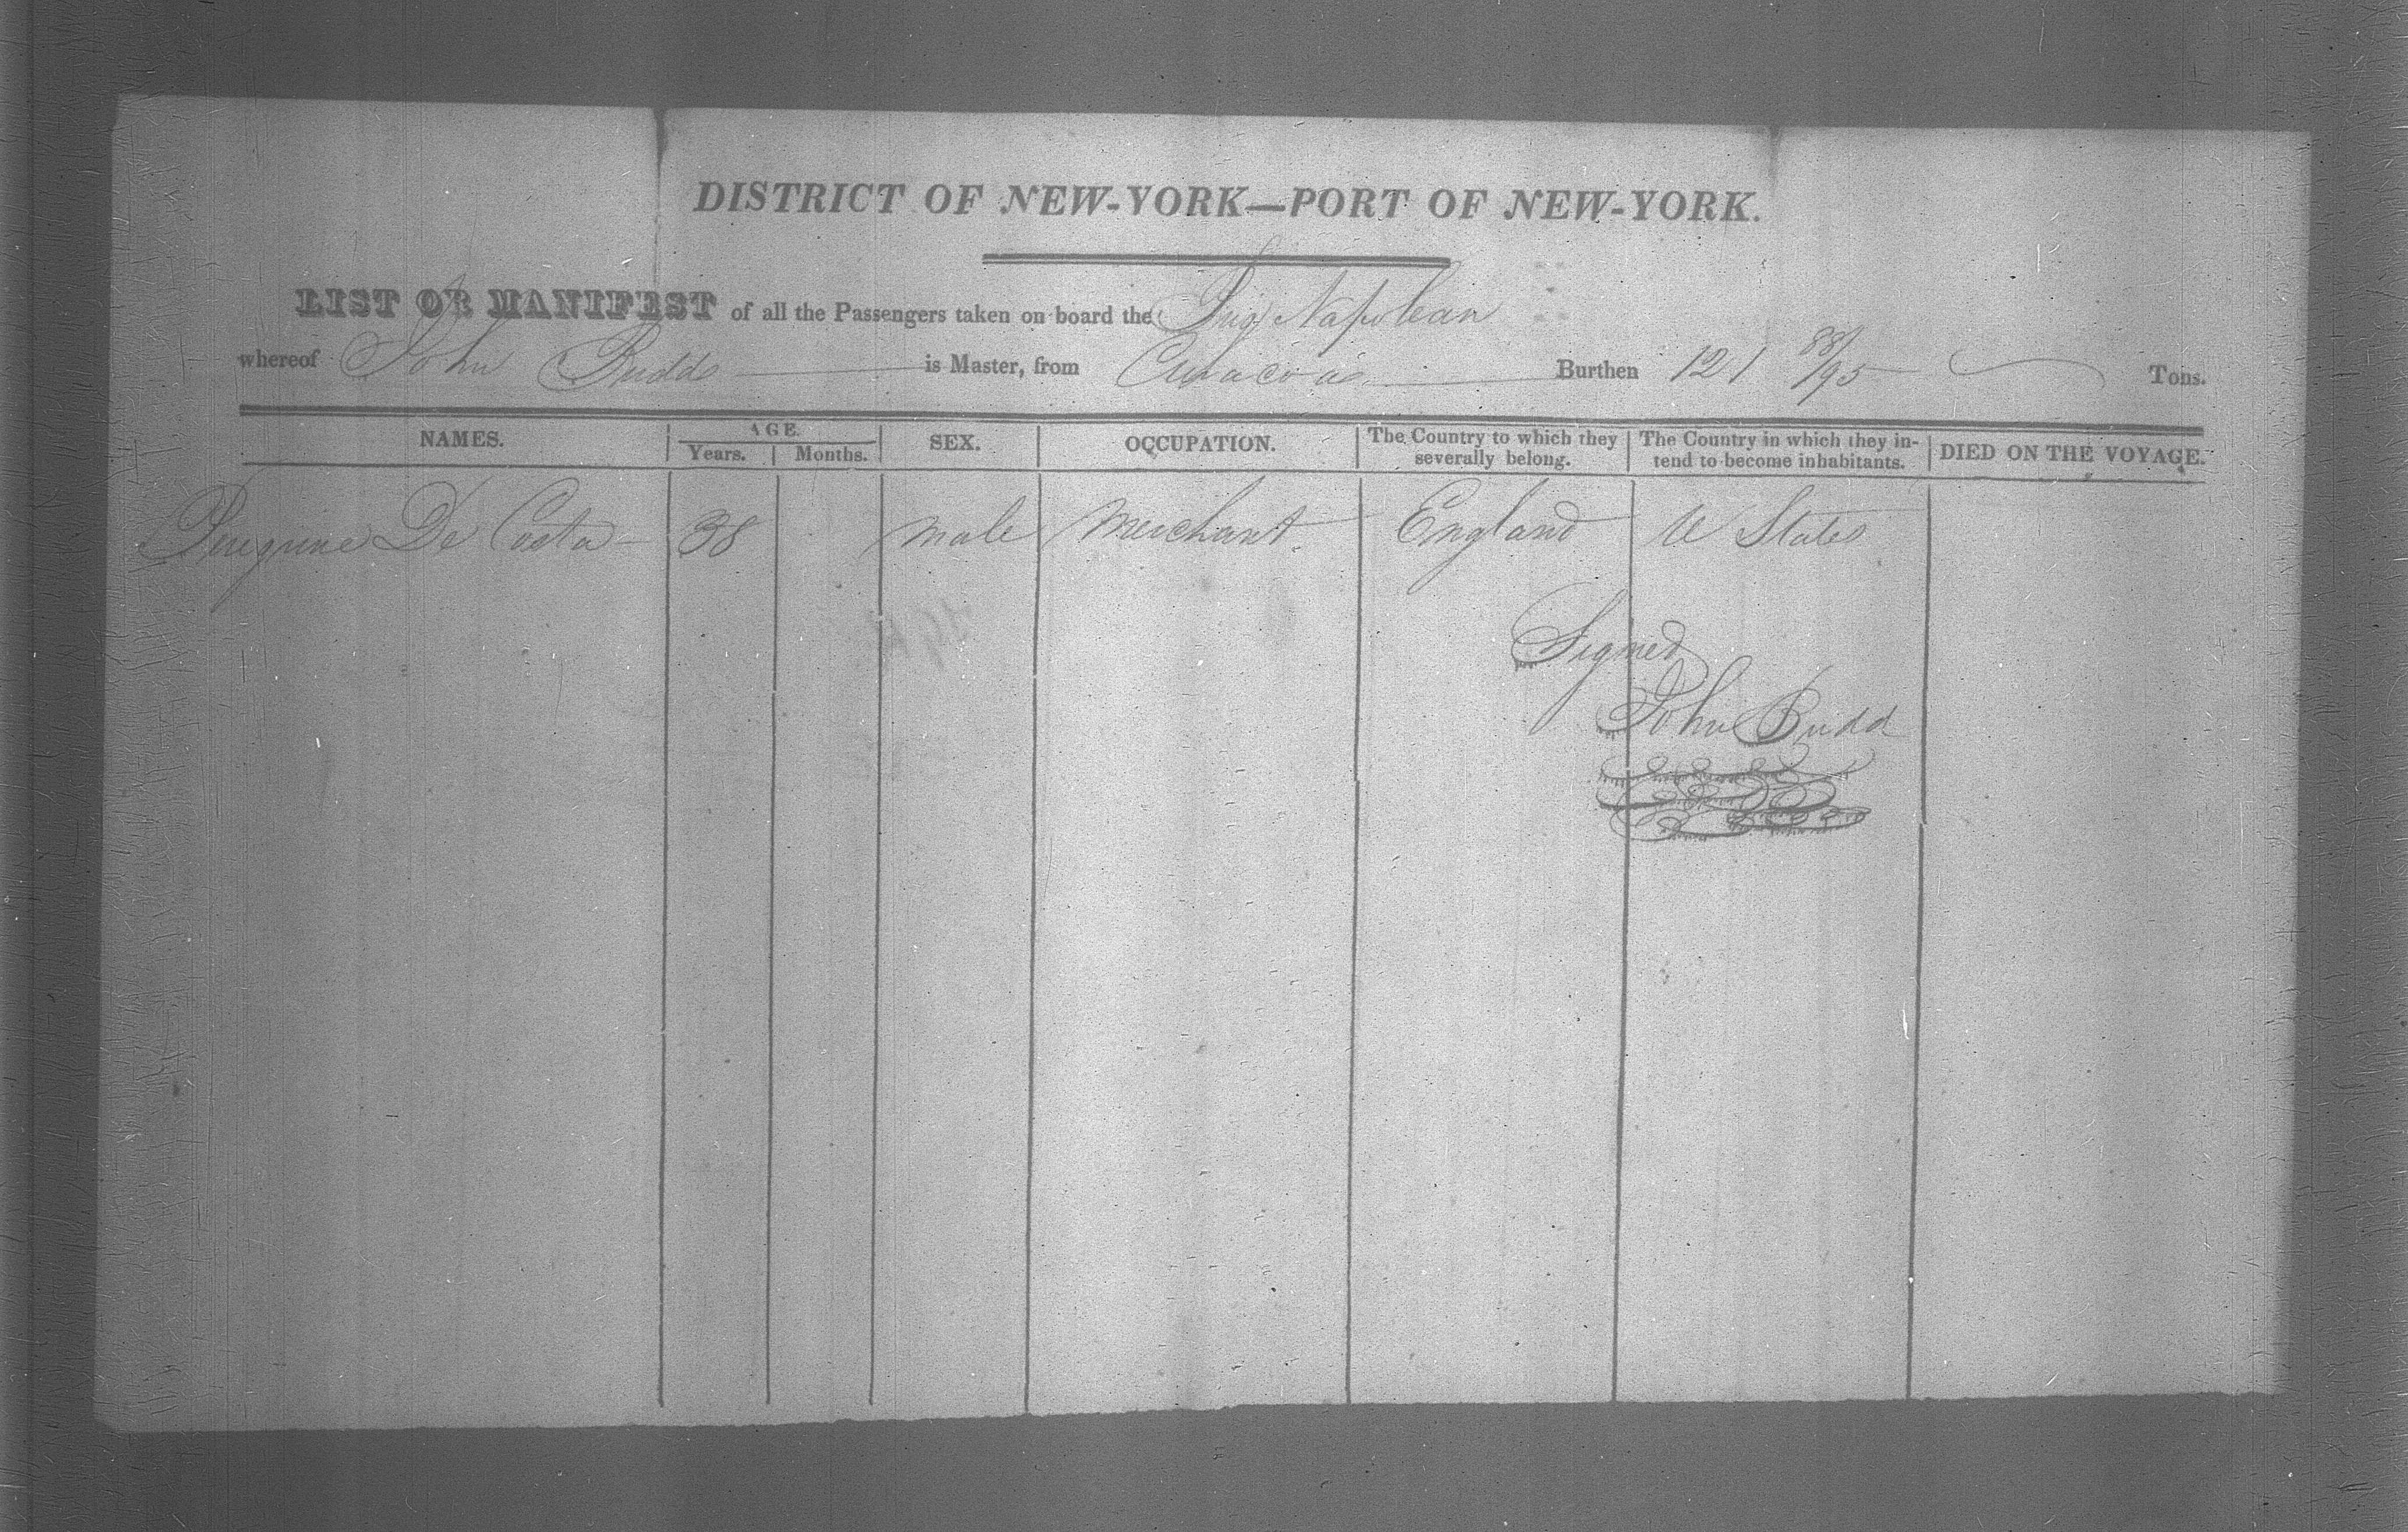 DISTRICT OF NEW-YORK—PORT OF NEW-YORK.
LIST OR MANIFEST of all the Passengers taken on board the Brig Napolean
whereof John Budd is Master, from Curacoa Burthen 121 88/95 Tons.
NAMES. AGE. Years. Months. SEX. OCCUPATION. The Country to which they severally belong. The Country in which they intend to become inhabitants. DIED ON THE VOYAGE.
Peregrine De Costa 38 male Merchant England U States
Signed
John Budd